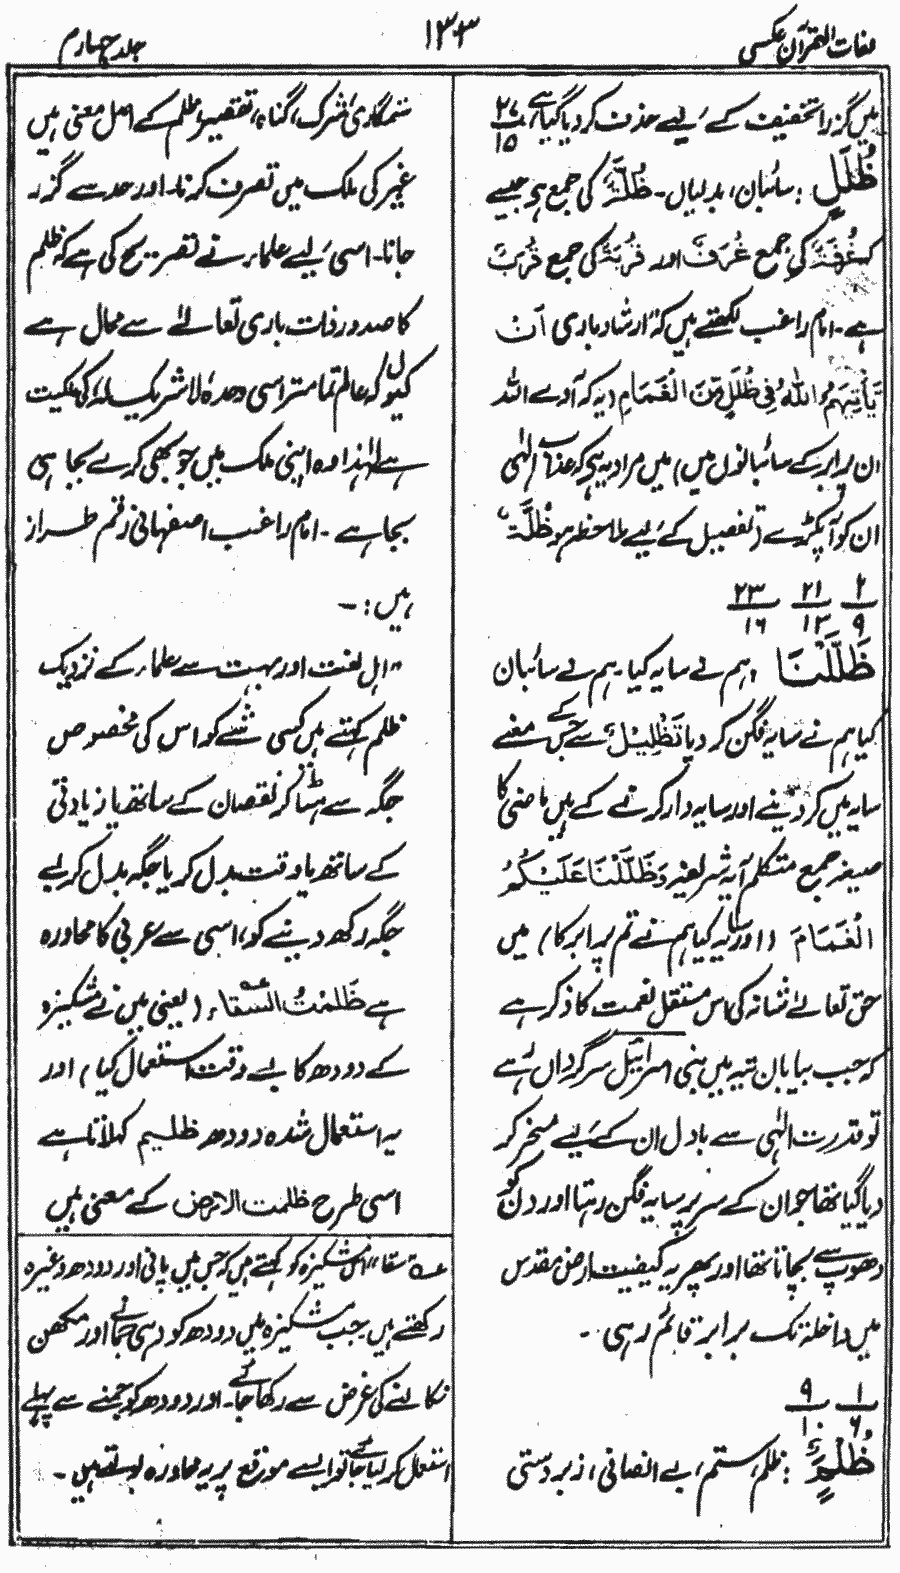 لغات القرآن عکسی
۱۳۳
جلد چہارم
میں گزرا تخفیف کے لیے حذف کر دیا گیا ہے، ۲۷/۱۵
ظُلَلٍ : سائبان، بدلیاں۔ ظُلَّةٌ کی جمع ہے جیسے
غُرْفَةٌ کی جمع غُرَفٌ اور قُرْبَةٌ کی جمع قُرَبٌ
ہے۔ امام راغب لکھتے ہیں کہ ارشاد باری اَنْ
يَّأْتِيَهُمُ اللهُ فِي ظُلَلٍ مِّنَ الْغَمَامِ (یہ کہ آوے اللہ
ان پر ابر کے سائبانوں میں) میں مراد یہ ہے کہ عذاب الٰہی
ان کو آ پکڑے (تفصیل کے لیے ملاحظہ ہو ظُلَّةٌ)
۲/۹ ۲۱/۱۳ ۲۳/۱۶
ظَلَّلْنَا : ہم نے سایہ کیا۔ ہم نے سائبان
کیا ہم نے سایہ فگن کر دیا تَظْلِيْلٌ سے جس کے معنے
سایہ میں کر دینے اور سایہ دار کرنے کے ہیں ماضی کا
صیغہ جمع متکلم آیہ شریفہ وَظَلَّلْنَا عَلَيْكُمُ
الْغَمَامَ (اور سایہ کیا ہم نے تم پر ابر کا) میں
حق تعالےٰ شانہ کی اس مستقل نعمت کا ذکر ہے
کہ جب بیابان تیہ میں بنی اسرائیل سرگرداں رہے
تو قدرت الٰہی سے بادل ان کے لیے مسخر کر
دیا گیا تھا جو ان کے سر پر سایہ فگن رہتا اور دن کو
دھوپ سے بچاتا تھا اور پھر یہ کیفیت ارض مقدس
میں داخلہ تک برابر قائم رہی۔
۱/۶ ۹/۱۰
ظُلْمٌ : ظلم، ستم، بے انصافی، زبردستی
ستمگاری، شرک، گناہ، تقصیر، ظلم کے اصل معنی ہیں
غیر کی ملک میں تصرف کرنا۔ اور حد سے گزر
جانا۔ اسی لیے علماء نے تصریح کی ہے کہ ظلم
کا صدور ذات باری تعالےٰ سے محال ہے
کیوں کہ عالم تمامتر اسی وحدہٗ لا شریک لہٗ کی ملکیت
ہے لہٰذا وہ اپنی ملک میں جو بھی کرے بجا ہی
بجا ہے۔ امام راغب اصفہانی رقم طراز
ہیں :۔
"اہل لغت اور بہت سے علماء کے نزدیک
ظلم کہتے ہیں کسی شے کو اس کی مخصوص
جگہ سے ہٹا کر نقصان کے ساتھ یا زیادتی
کے ساتھ یا وقت بدل کر یا جگہ بدل کر لیے
جگہ رکھ دینے کو، اسی سے عربی کا محاورہ
ہے ظَلَمْتُ السِّقَاءَ (یعنی میں نے مشکیزہ
کے دودھ کا بے وقت استعمال کیا) اور
یہ استعمال شدہ دودھ ظلیم کہلاتا ہے
اسی طرح ظلمت الارض کے معنی ہیں
عہ سقاء اس مشکیزہ کو کہتے ہیں کہ جس میں پانی اور دودھ وغیرہ
رکھتے ہیں۔ جب مشکیزہ میں دودھ کو دہی جمانے اور مکھن
نکالنے کی غرض سے رکھا جائے۔ اور دودھ کو جمنے سے پہلے
استعمال کر لیا جائے تو ایسے موقع پر یہ محاورہ بولتے ہیں۔